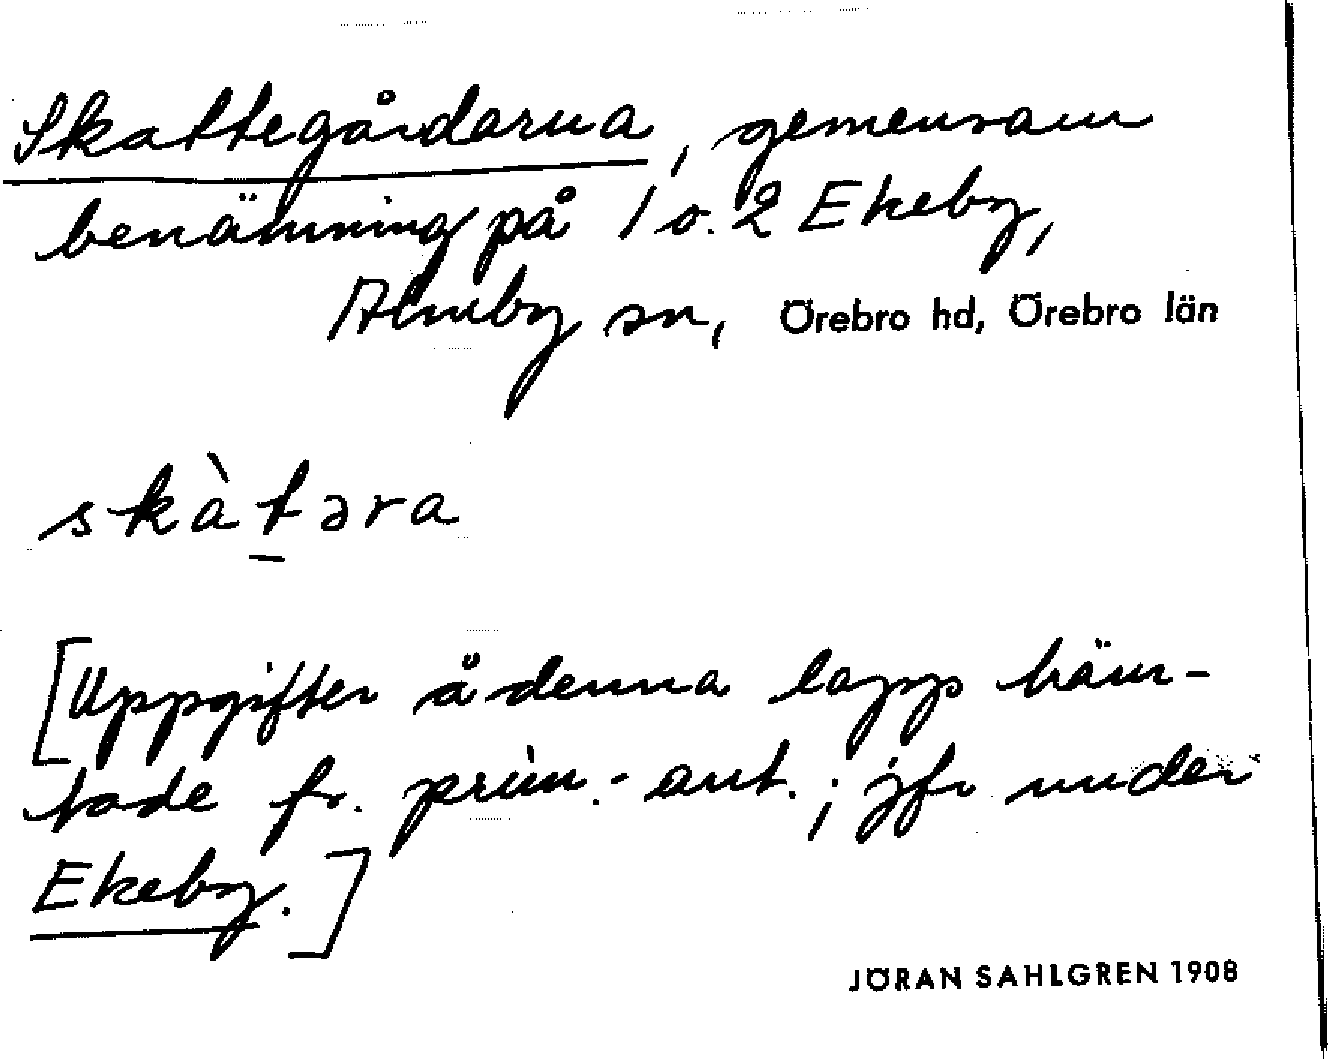 Skattegårdarna, gemensam
benämning på 1 o. 2 Ekeby,
Almby sn, Örebro hd, Örebro län
skàtəra
[Uppgifter å denna lapp häm-
tade fr. prim.-ant.; jfr under
Ekeby.]
JÖRAN SAHLGREN 1908